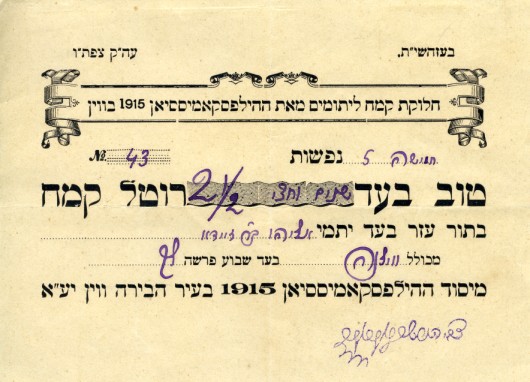 בעזהשי״ת. עה״ק צפת״ו
חלוקת קמח ליתומים מאת ההילפסקאמיססיאן 1915 בווין
חמשה 5 נפשות № 43
טוב בעד שנים וחצי 2½ רוטל קמח
בתור עזר בעד יתמי
מכולל בעד שבוע פרשה לך
מיסוד ההילפסקאמיססיאן 1915 בעיר הבירה ווין יע״א